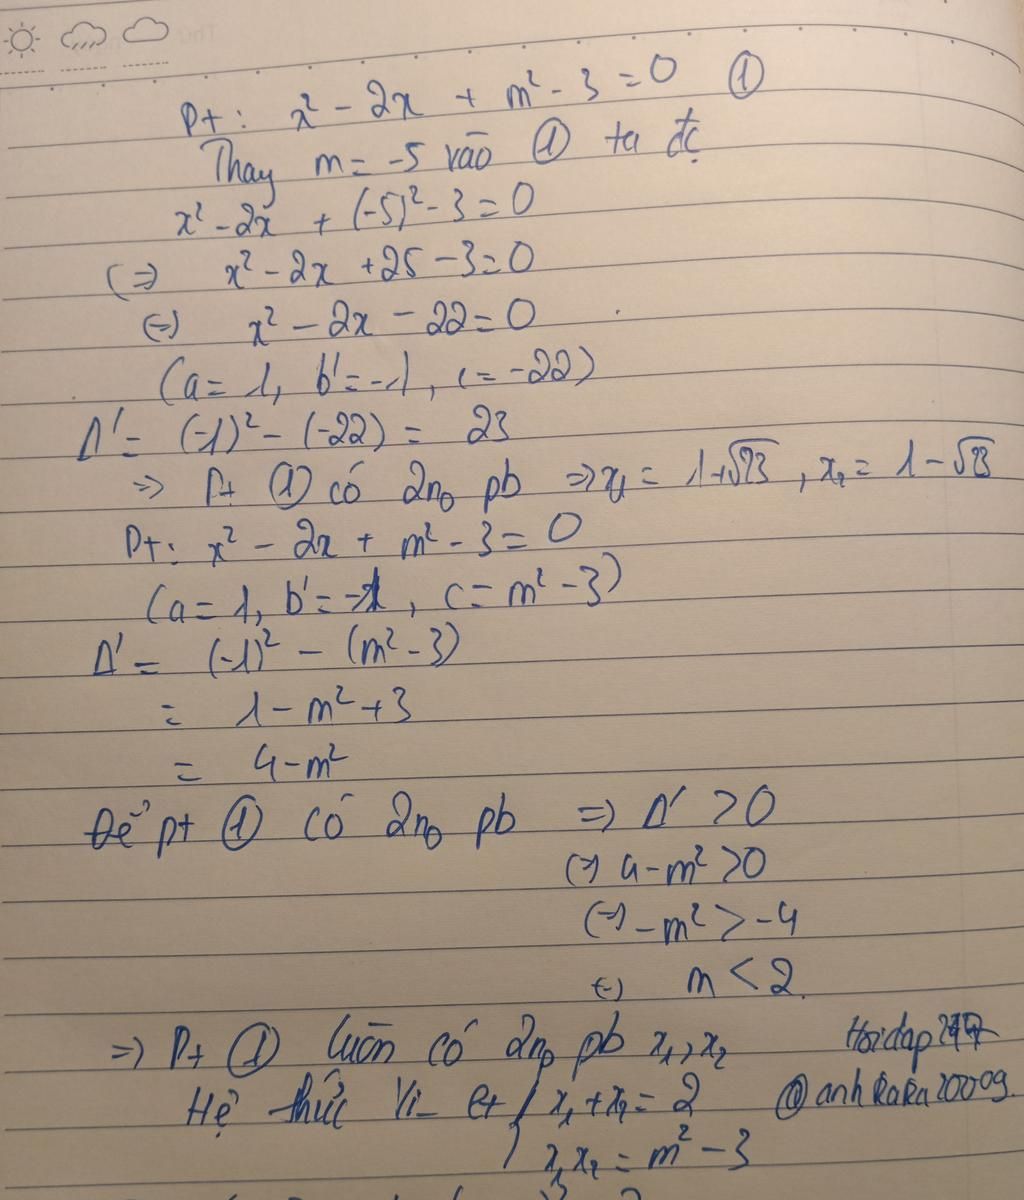 Pt: x² - 2x + m² - 3 = 0 ①
Thay m = -5 vào ① ta đc
x² - 2x + (-5)² - 3 = 0
(=) x² - 2x + 25 - 3 = 0
(=) x² - 2x - 22 = 0
(a = 1, b' = -1, c = -22)
Δ' = (-1)² - (-22) = 23
=> Pt ① có 2n₀ pb => x₁ = 1+√23, x₂ = 1 - √23
Pt: x² - 2x + m² - 3 = 0
(a = 1, b' = -1, c = m² - 3)
Δ' = (-1)² - (m² - 3)
= 1 - m² + 3
= 4 - m²
Để pt ① có 2n₀ pb => Δ' > 0
(=) 4 - m² > 0
(=) - m² > - 4
(=) m < 2.
=> Pt ① luôn có 2n₀ pb x₁, x₂ Hoidap247
Hệ thức Vi-et { x₁ + x₂ = 2 @anhkaka2000g.
x₁x₂ = m² - 3